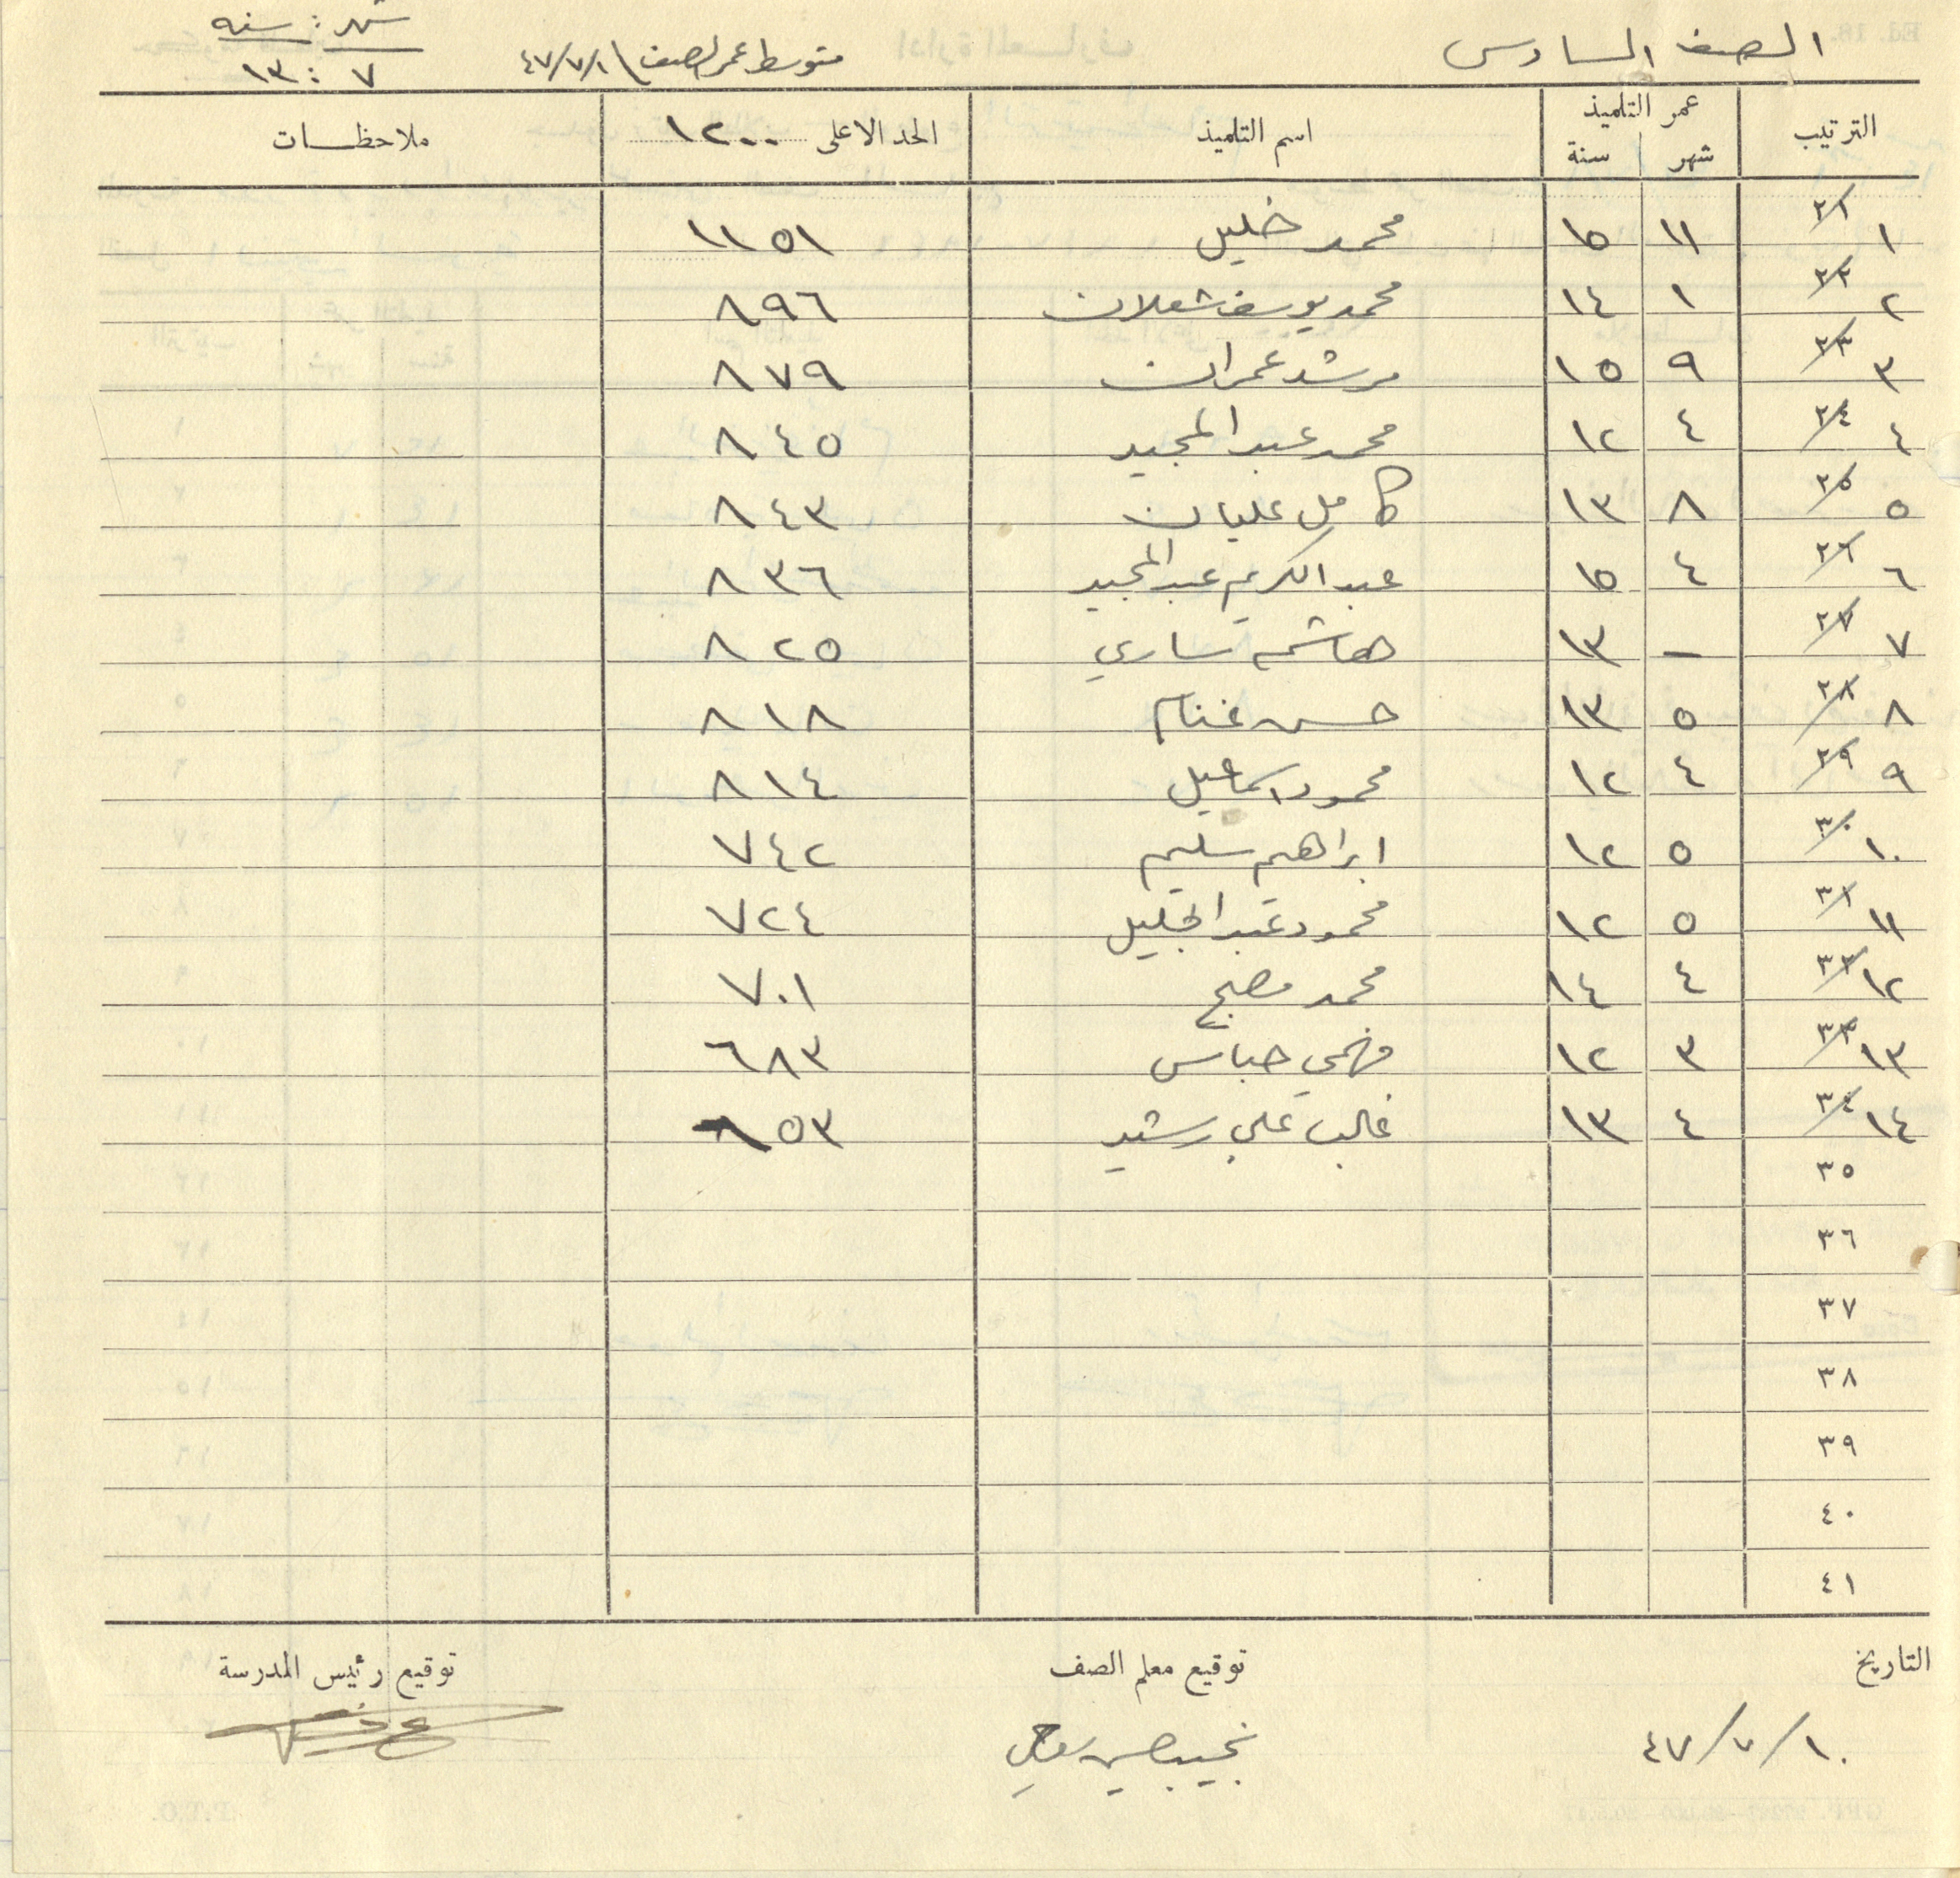 الصف السادس متوسط عمر الصف ١/٧/٤٧ شهر : سنه
٧ : ١٣
الترتيب عمر التلميذ اسم التلميذ الحد الاعلى ١٢٠٠ ملاحظات
شهر سنة
١ ١١ ١٥ محمد خليل ١١٥١
٢ ١ ١٤ محمد يوسف شعلان ٨٩٦
٣ ٩ ١٥ مرشد عمران ٨٧٩
٤ ٤ ١٢ محمد عبد المجيد ٨٤٥
٥ ٨ ١٣ كامل عليان ٨٤٣
٦ ٤ ١٥ عبد الكريم عبد المجيد ٨٣٦
٧ – ١٣ هاشم ساري ٨٢٥
٨ ٥ ١٣ حسن غنام ٨١٨
٩ ٤ ١٢ محمود اسماعيل ٨١٤
١٠ ٥ ١٢ ابراهيم سليم ٧٤٢
١١ ٥ ١٢ محمود عبد الجليل ٧٢٤
١٢ ٤ ١٤ محمد مصبح ٧٠١
١٣ ٣ ١٢ فهمي حباس ٦٨٣
١٤ ٤ ١٣ غالب علي رشيد ٥٣
٣٥
٣٦
٣٧
٣٨
٣٩
٤٠
٤١
التاريخ توقيع معلم الصف توقيع رئيس المدرسة
١٠/٧/٤٧ نجيب